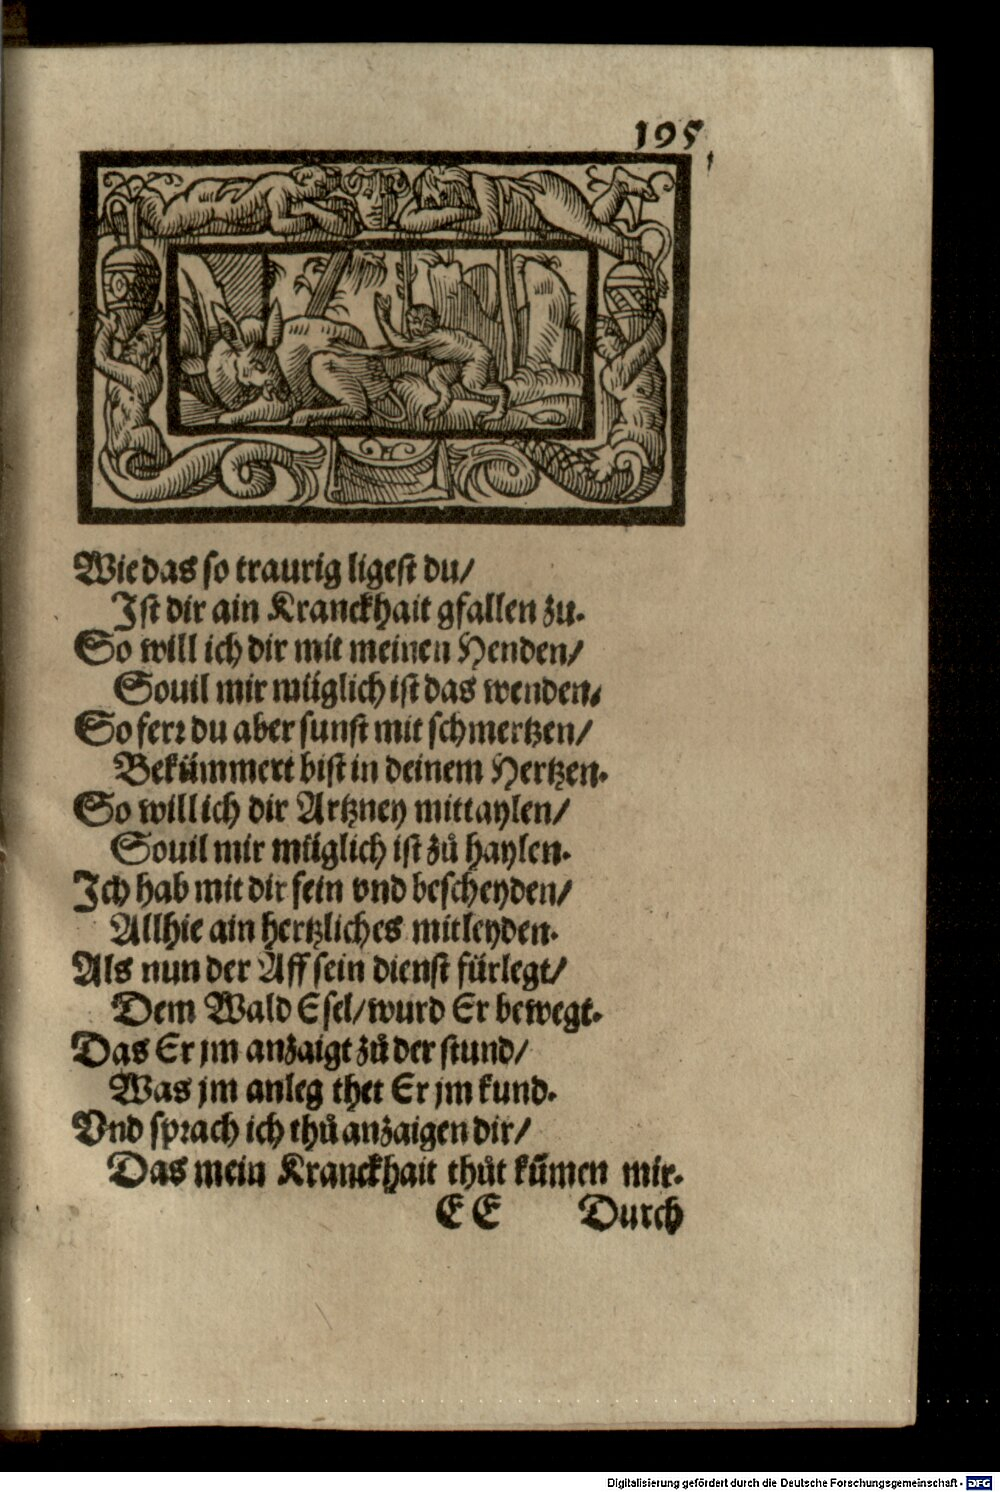 195
Wie das so traurig ligest du/
Ist dir ain Kranckhait gfallen zu.
So will ich dir mit meinen Henden/
Souil mir müglich ist das wenden.
So ferr du aber sunst mit schmertzen/
Bekümmert bist in deinem Hertzen.
So will ich dir Artzney mittaylen/
Souil mir müglich ist zů haylen.
Ich hab mit dir fein vnd bescheyden/
Allhie ain hertzliches mitleyden.
Als nun der Aff sein dienst fürlegt/
Dem Wald Esel/ wurd Er bewegt.
Das Er jm anzaigt zů der stund/
Was jm anleg thet Er jm kund.
Vnd sprach ich thů anzaigen dir/
Das mein Kranckhait thůt kūmen mir.
EE Durch
Digitalisierung gefördert durch die Deutsche Forschungsgemeinschaft - DFG